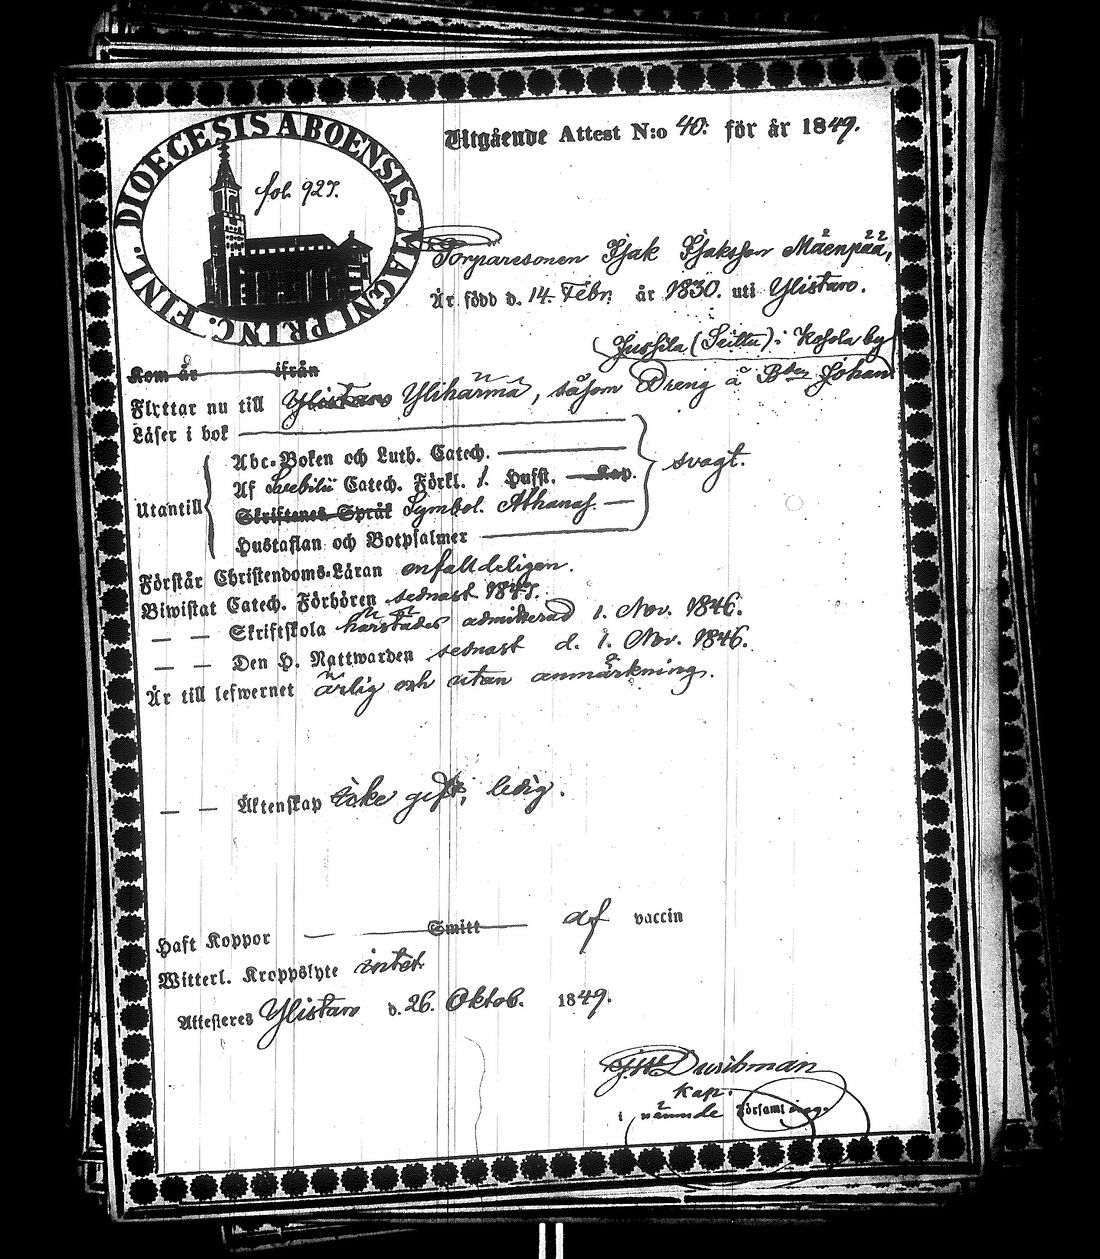 DIOECESIS ABOENSIS. MAGNI PRINC. FINL.
fol. 927.
Utgående Attest N:o 40. för år 1849.
Torparesonen Isak Isaksson Mäenpää,
Är född d. 14. Febr. år 1830. uti Ylistaro.
Jussila (Seittu) i Kosola by
Kom år ifrån
Flyttar nu till Ylistaro Ylihärmä, såsom Dreng å Johan
Läser i bok
Abc-Boken och Luth. Catech.
Utantill
Af Svebilii Catech. Förkl. 1. Hufst. Kap.
svagt.
Skriftenes Språk Symbol. Athanas.
Hustaflan och Botpsalmer
Förstår Christendoms-Läran enfaldeligen.
Biwistat Catech. Förhören sednast 1847.
— — Skriftskola härstädes admitterad 1. Nov. 1846.
— — Den H. Nattwarden sednast d. 1. Nov. 1846.
Är till lefwernet ärlig och utan anmärkning.
— — Äktenskap icke gift, ledig.
Haft Koppor Smitt af vaccin
Witterl. Kroppslyte intet
Attesteres Ylistaro d. 26. Oktob. 1849.
Kap.
i nämnde Församling.